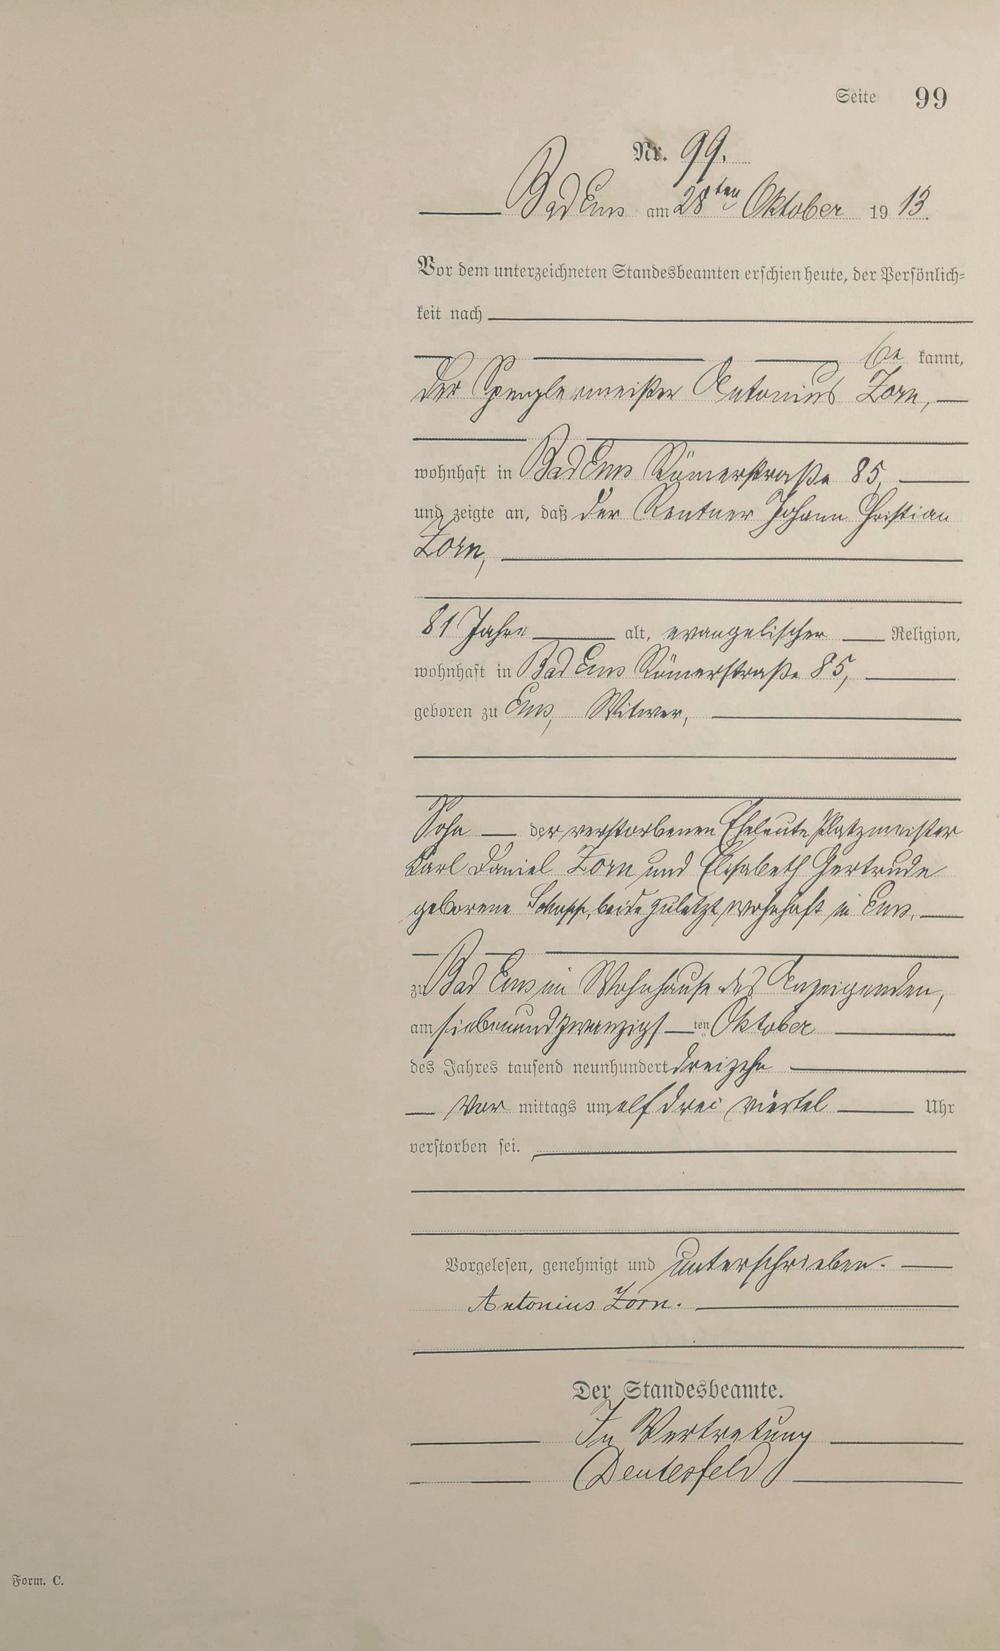 Seite 99
Nr. 99.
Bad Ems am 28ten Oktober 1913.
Vor dem unterzeichneten Standesbeamten erschien heute, der Persönlich-
keit nach
be kannt,
der Spenglermeister Antonius Zorn,
wohnhaft in Bad Ems Römerstraße 85,
und zeigte an, daß der Rentner Johann Christian
Zorn,
81 Jahre alt, evangelischer Religion,
wohnhaft in Bad Ems Römerstraße 85,
geboren zu Ems, Witwer,
Sohn der verstorbenen Eheleute Platzmeister
Karl Daniel Zorn und Elisabeth Gertrude
geborene beide zuletzt wohnhaft in Ems.
zu Bad Ems im Wohnhause des Anzeigenden,
am siebenundzwanzigsten Oktober
des Jahres tausend neunhundert dreizehn
Vor mittags um elf drei viertel Uhr
verstorben sei.
Vorgelesen, genehmigt und unterschrieben.
Antonius Zorn.
Der Standesbeamte.
In Vertretung
Deutesfeld
Form. C.